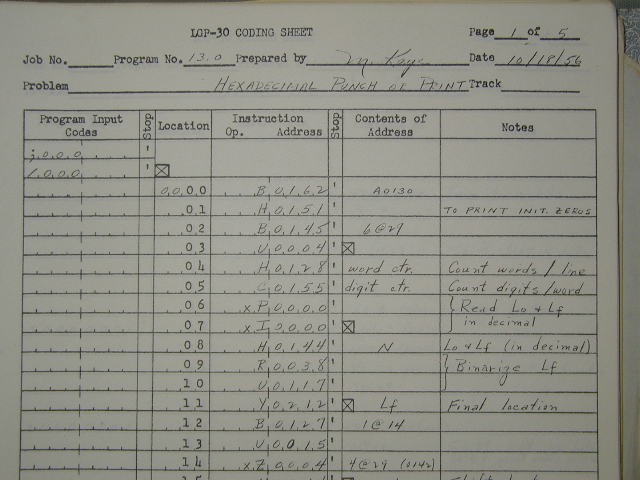 LGP-30 CODING SHEET Page 1 of 5
Job No. Program No. 13.0 Prepared by M. Kaye Date 10/18/56
Problem HEXADECIMAL PUNCH or PRINT Track
Program Input Codes Stop Location Instruction Op. Address Stop Contents of Address Notes
;0,0,0 '
/0,0,0 '
0,0,0,0 B 0,1,6,2 ' A0130
0,1 H 0,1,5,1 ' TO PRINT INIT. ZEROS
0,2 B 0,1,4,5 ' 6@29
0,3 U 0,0,0,4 '
0,4 H 0,1,2,8 ' word ctr. Count words / line
0,5 C 0,1,5,5 ' digit ctr. Count digits/word
0,6 x P 0,0,0,0 ' Read Lo & Lf
0,7 x I 0,0,0,0 ' in decimal
0,8 H 0,1,4,4 ' N Lo & Lf (in decimal)
0,9 R 0,0,3,8 ' Binarize Lf
1,0 U 0,1,1,7 '
1,1 Y 0,2,1,2 ' Lf Final location
1,2 B 0,1,2,7 ' 1@14
1,3 U 0,0,1,5 '
1,4 x Z 0,0,0,4 ' 4@29 (0142)